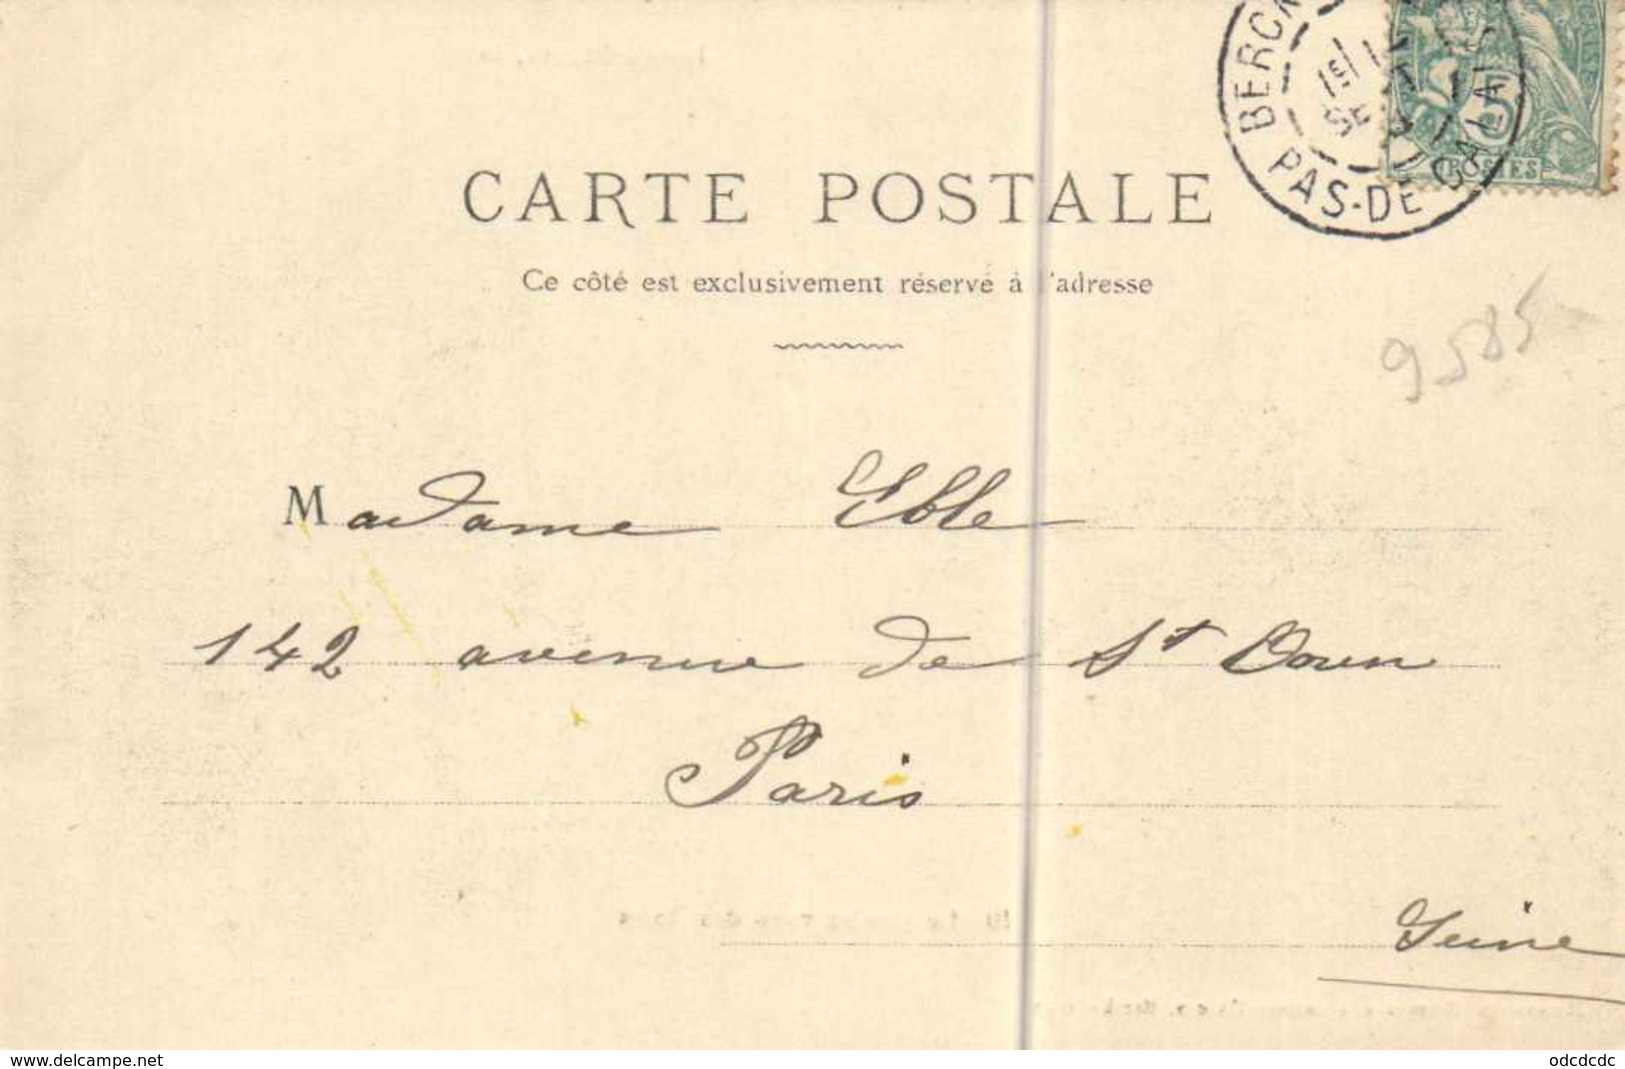 BERCK
PAS-DE-CALAIS
5
POSTES
CARTE POSTALE
Ce côté est exclusivement réservé à l'adresse
9585
Madame Eble
142 avenue de St Ouen
Paris
Seine
www.delcampe.net
odcdcdc